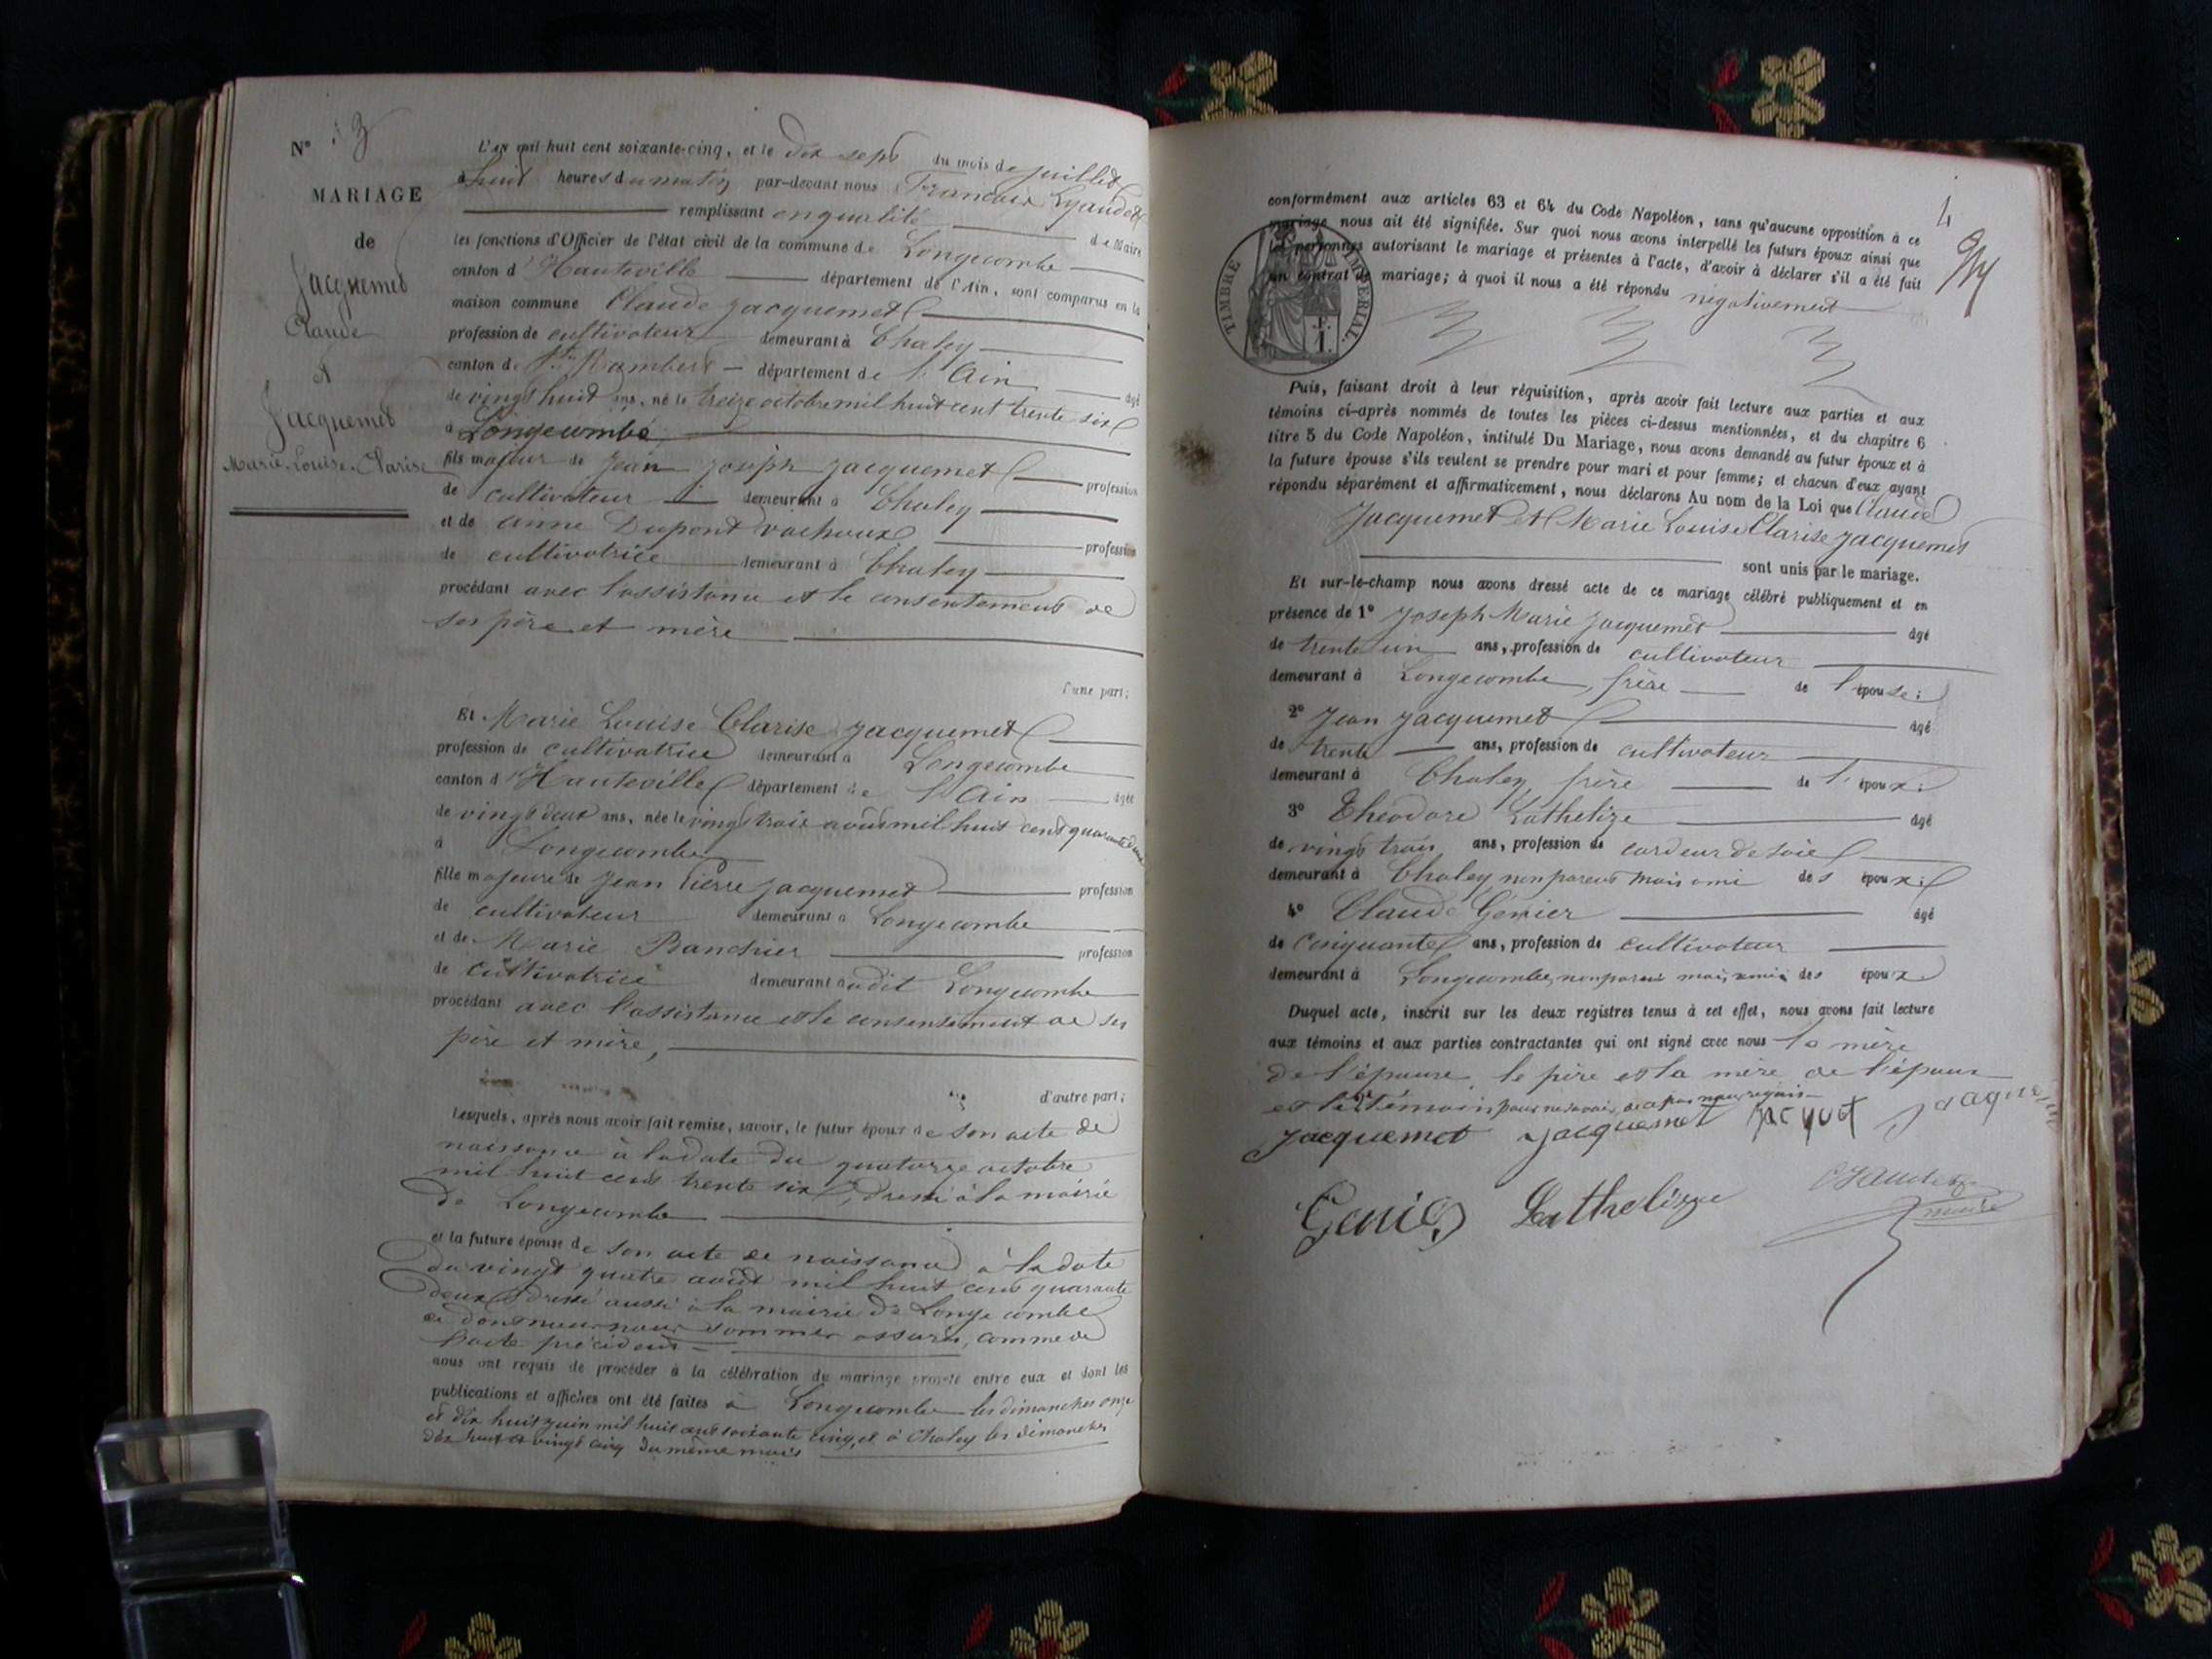 N° 3
MARIAGE
de
Jacquemet
Claude
Et
Jacquemet
Marie-Louise-Clarise
L'an mil huit cent soixante-cinq, et le dix sept du mois de juillet
à huit heures du matin par-devant nous François Lyaudet
remplissant en qualité de Maire
les fonctions d'Officier de l'état civil de la commune de Longecombe
canton d'Hauteville département de l'Ain, sont comparus en la
maison commune Claude jacquemet
profession de cultivateur demeurant à Chaley
canton de St Rambert département de l'Ain âgé
de vingt huit ans, né le treize octobre mil huit cent trente six
à Longecombe
fils majeur de jean joseph jacquemet profession
de cultivateur demeurant à Chaley
et de anne Dupont vachoux profession
de cultivatrice demeurant à Chaley
procédant avec l'assistance et le consentement de
ses père et mère
d'une part;
Et Marie Louise Clarise jacquemet
profession de cultivatrice demeurant à Longecombe
canton d'Hauteville département de l'Ain âgée
de vingt deux ans, née le vingt trois août mil huit cent quarante deux
à Longecombe
fille majeure de jean Pierre jacquemet profession
de cultivateur demeurant à Longecombe
et de Marie profession
de cultivatrice demeurant audit Longecombe
procédant avec l'assistance et le consentement de ses
père et mère,
d'autre part;
Lesquels, après nous avoir fait remise, savoir, le futur époux de son acte de
naissance à la date du quatorze octobre
mil huit cent trente six, dressé à la mairie
de Longecombe
et la future épouse de son acte de naissance à la date
du vingt quatre août mil huit cent quarante
deux dressé aussi à la mairie de Longecombe
et dont nous nous sommes assuré, comme de
l'acte précédent
nous ont requis de procéder à la célébration du mariage projeté entre eux et dont les
publications et affiches ont été faites à Longecombe les dimanches onze
et dix huit juin mil huit cent soixante cinq, et à Chaley les dimanches
dix huit et vingt cinq du même mois
4
conformément aux articles 63 et 64 du Code Napoléon, sans qu'aucune opposition à ce
mariage nous ait été signifiée. Sur quoi nous avons interpellé les futurs époux ainsi que
les personnes autorisant le mariage et présentes à l'acte, d'avoir à déclarer s'il a été fait
un contrat de mariage; à quoi il nous a été répondu négativement
TIMBRE IMPERIAL
F. 1.
Puis, faisant droit à leur réquisition, après avoir fait lecture aux parties et aux
témoins ci-après nommés de toutes les pièces ci-dessus mentionnées, et du chapitre 6
titre 5 du Code Napoléon, intitulé Du Mariage, nous avons demandé au futur époux et à
la future épouse s'ils veulent se prendre pour mari et pour femme; et chacun d'eux ayant
répondu séparément et affirmativement, nous déclarons Au nom de la Loi que Claude
Jacquemet et Marie Louise Clarise jacquemet
sont unis par le mariage.
Et sur-le-champ nous avons dressé acte de ce mariage célébré publiquement et en
présence de 1° Joseph Marie jacquemet âgé
de trente un ans, profession de cultivateur
demeurant à Longecombe, frère de l'épouse;
2° Jean jacquemet âgé
de trente ans, profession de cultivateur
demeurant à Chaley, frère de l'époux;
3° Théodore Lathelize âgé
de vingt trois ans, profession de cardeur de soie
demeurant à Chaley non parent mais ami des époux;
4° Claude Génier âgé
de cinquante ans, profession de cultivateur
demeurant à Longecombe, non parent mais ami des époux
Duquel acte, inscrit sur les deux registres tenus à cet effet, nous avons fait lecture
aux témoins et aux parties contractantes qui ont signé avec nous la mère
de l'épouse, le père et la mère de l'époux
et le témoin pour ne savoir, de ce par nous requis
Jacquemet jacquemet
Lathelize
maire